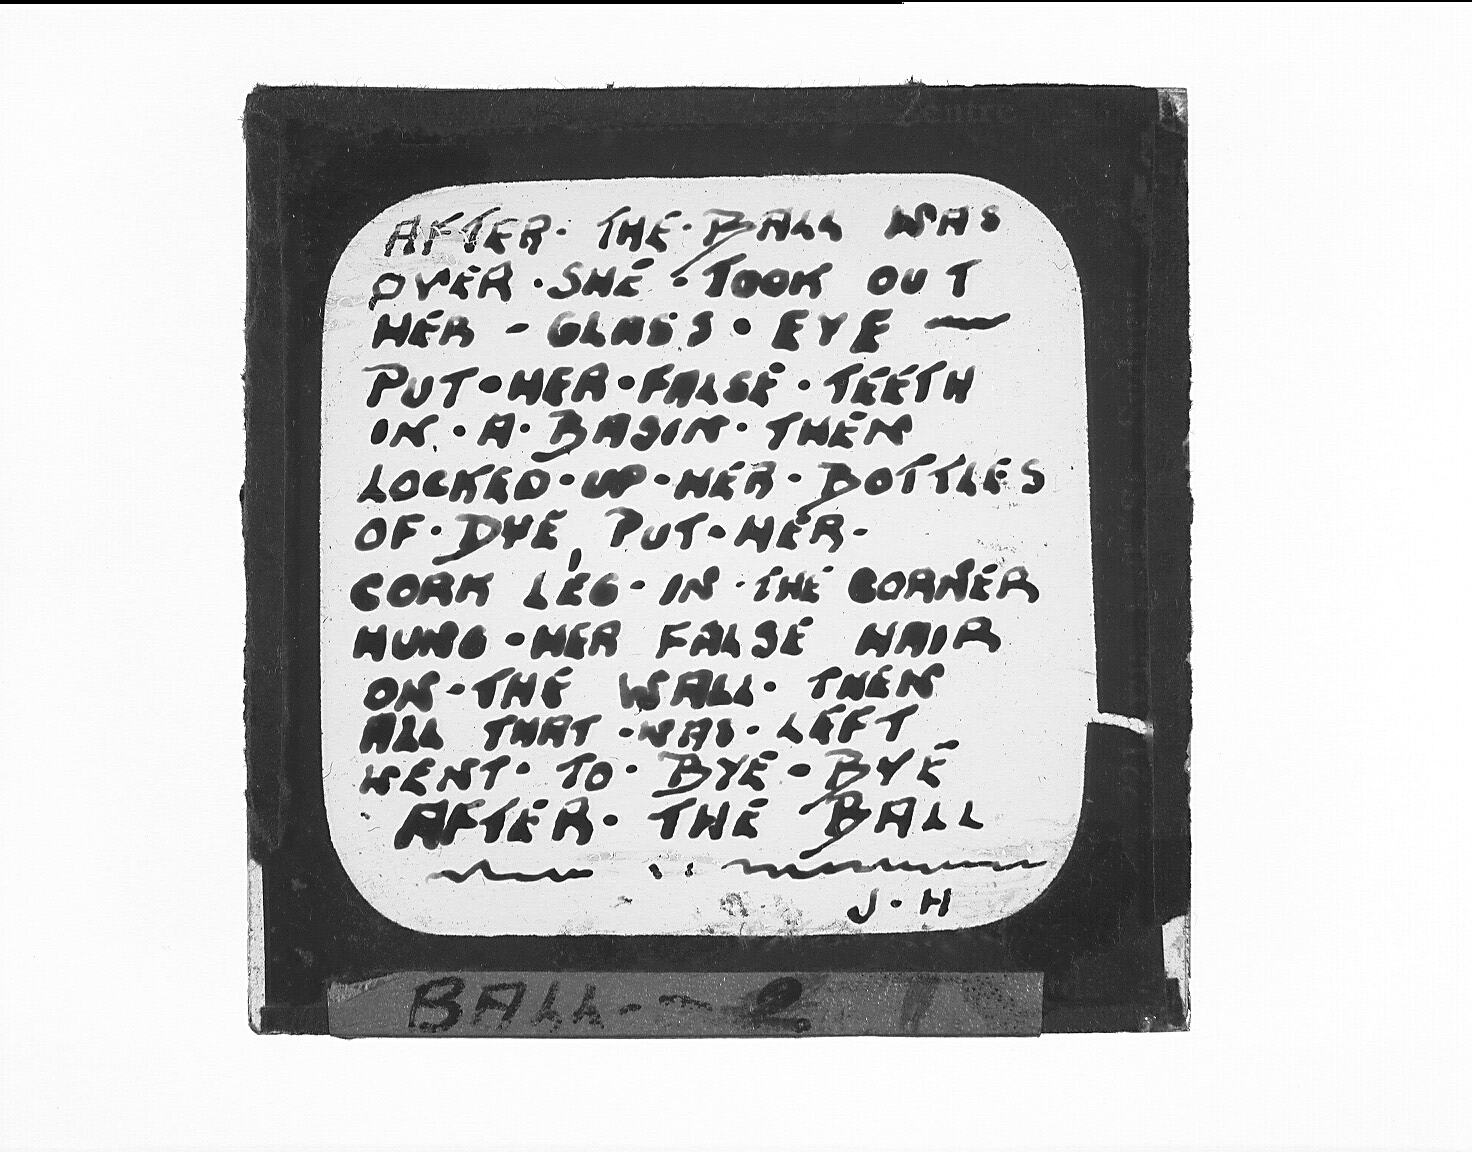 AFTER · THE · BALL WAS
OVER · SHE · TOOK OUT
HER - GLASS · EYE —
PUT · HER · FALSE · TEETH
IN · A · BASIN · THEN
LOCKED · UP · HER · BOTTLES
OF · DYE, PUT · HER -
CORK LEG · IN · THE CORNER
HUNG · HER FALSE HAIR
ON · THE WALL · THEN
ALL THAT · WAS · LEFT
WENT · TO · BYE · BYE
AFTER · THE BALL
J · H
BALL - - 2